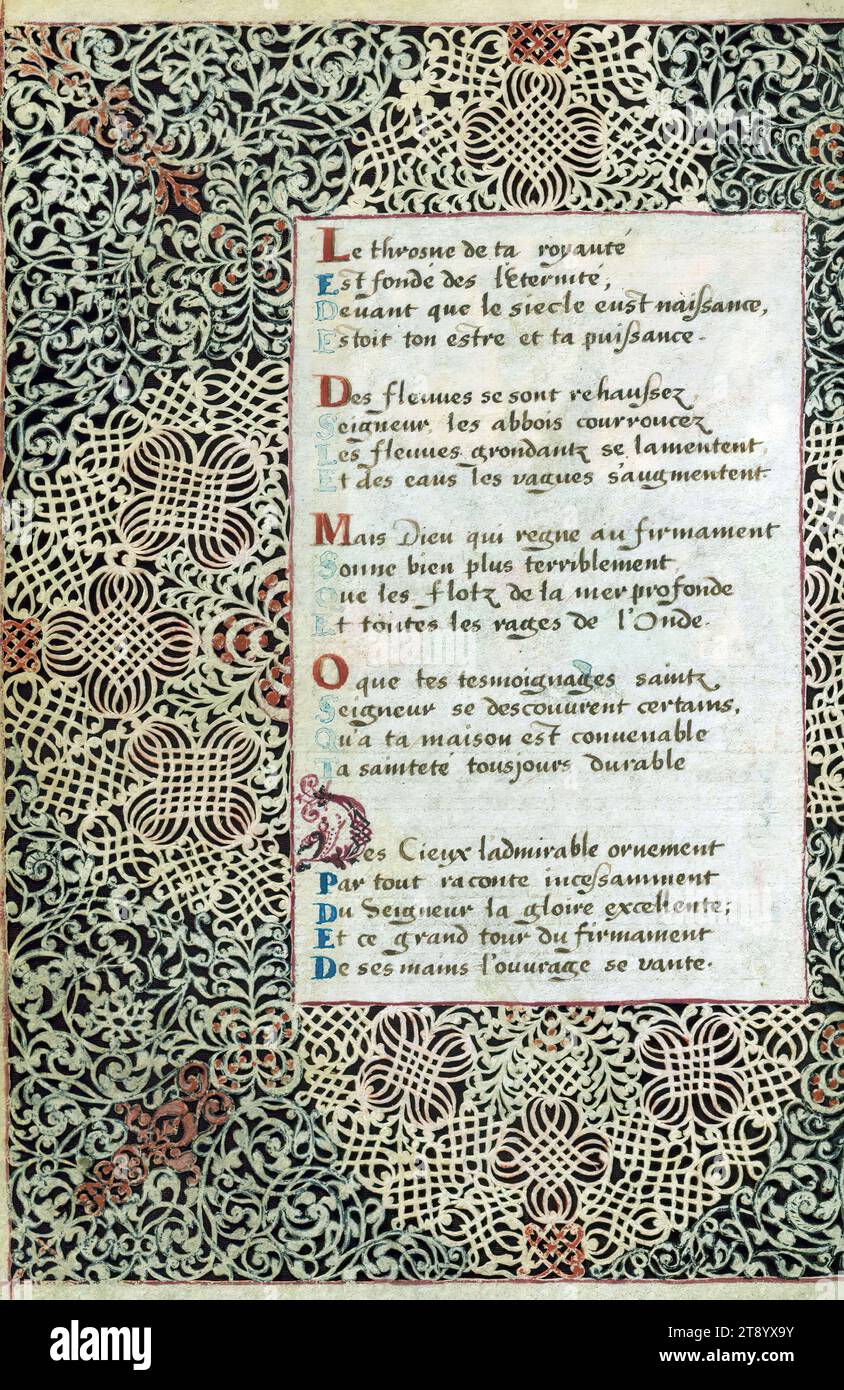 Le throsne de ta royauté
Est fondé des l'Eternité,
Devant que le siecle eust naissance,
Estoit ton estre et ta puissance.
Des fleuves se sont rehaussez
Seigneur, les abbois courroucez
Les fleuves grondantz se lamentent
Et des eaus les vagues s'augmentent.
Mais Dieu qui regne au firmament
Sonne bien plus terriblement
Que les flotz de la mer profonde
Et toutes les rages de l'Onde.
O que tes tesmoignages saintz
Seigneur se descouvrent certains,
Qu'a ta maison est convenable
La sainteté tousjours durable
Des Cieux ladmirable ornement
Par tout raconte incessamment
Du Seigneur la gloire excellente;
Et ce grand tour du firmament
De ses mains l'ouvrage se vante.
alamy
Image ID: 2T8YX9Y
www.alamy.com